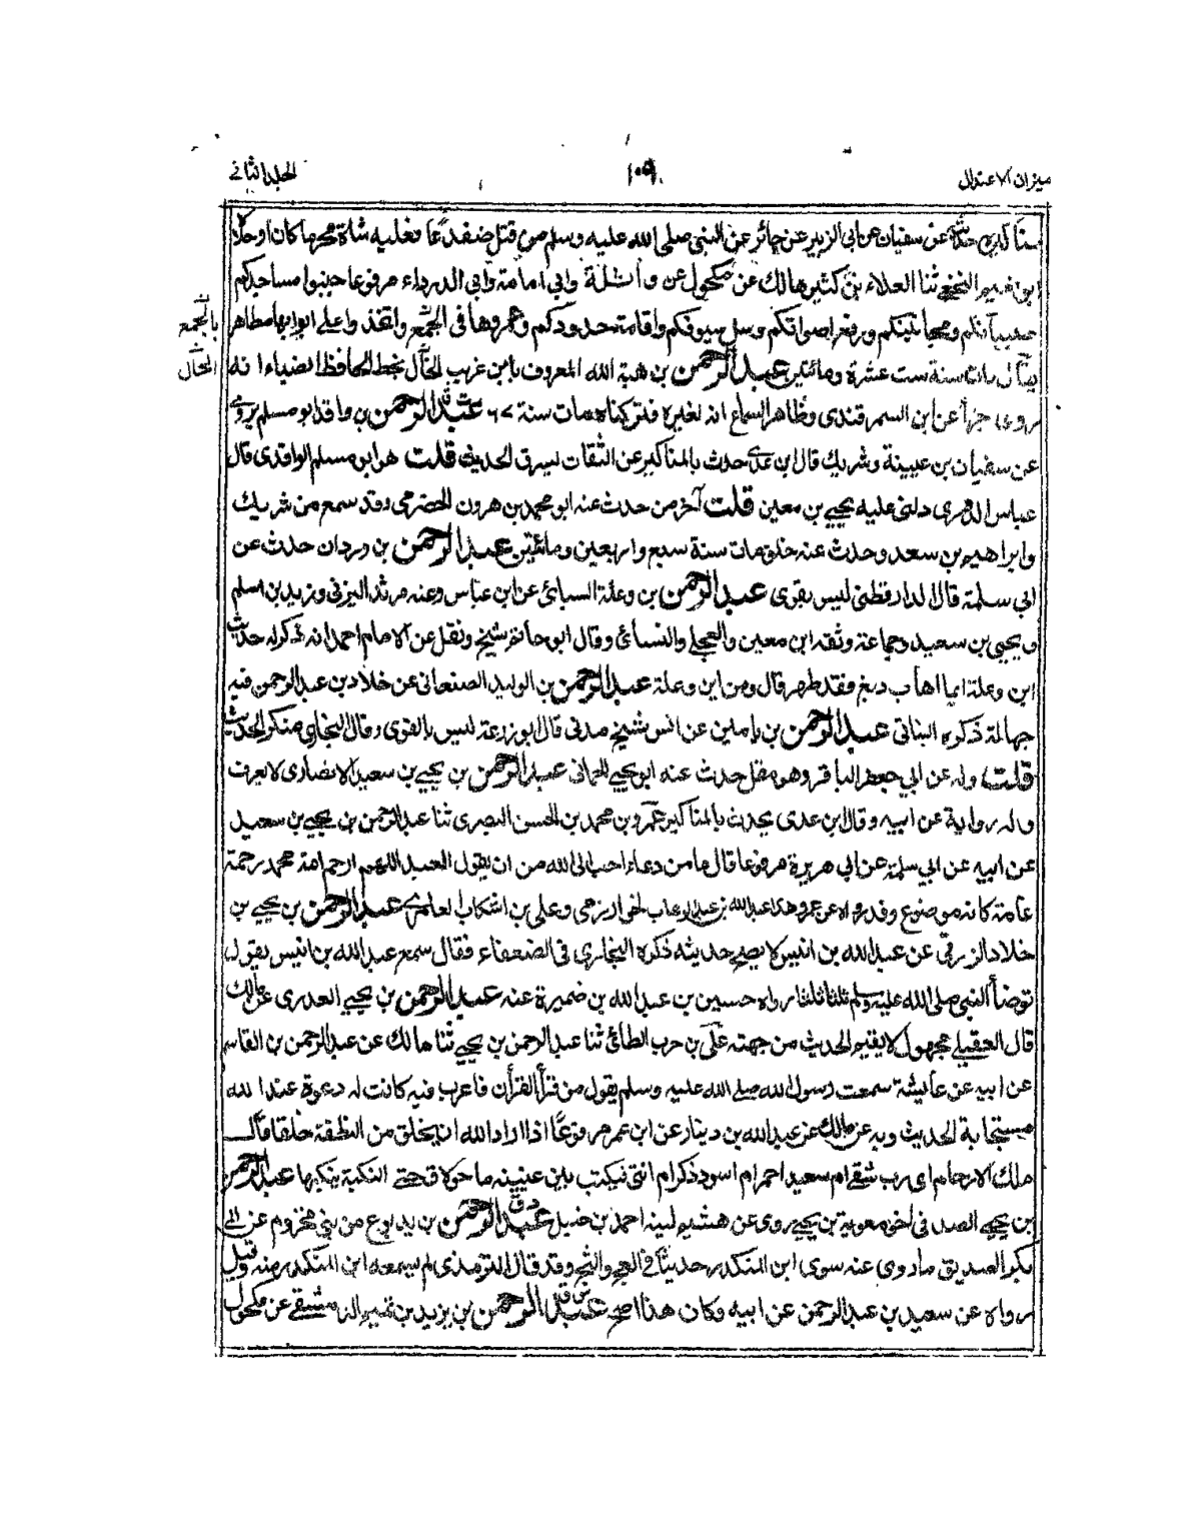 ميزان الاعتدال
١٠٩
الجلد الثاني
مناكيره حديثه عن سفيان عن ابي الزبير عن جابر عن النبي صلى الله عليه وسلم من قتل ضفدعا فعليه شاة محرما كان او حلالا
ابو نعيم النخعي ثنا العلاء بن كثير عن مكحول عن واثلة وابي امامة وابي الدرداء مرفوعا جنبوا مساجدكم
صبيانكم ومجانينكم ورفع اصواتكم وسل سيوفكم واقامة حدودكم وجمروها في الجمع واتخذوا على ابوابها مطاهر
يقال مات سنة ست عشرة ومائتين عبد الرحمن بن هبة الله المعروف بابن غريب الخال بخط الحافظ الضياء انه
روى جزأ عن ابن السمرقندي وظاهر السماع انه لغيره فتركناه مات سنة ٦٠٧ عبد الرحمن بن واقد ابو مسلم يروي
عن سفيان بن عيينة وشريك قال ابن عدي حدث بالمناكير عن الثقات يسرق الحديث قلت هو ابو مسلم الواقدي قال
عباس الدوري دلني عليه يحيي بن معين قلت آخر من حدث عنه ابو محمد بن هرون الحضرمي وقد سمع من شريك
وابراهيم بن سعد وحدث عنه خلق مات سنة سبع واربعين ومائتين عبد الرحمن بن وردان حدث عن
ابي سلمة قال الدارقطني ليس بقوي عبد الرحمن بن وعلة السبائي عن ابن عباس وعنه مرثد اليزني وزيد بن اسلم
ويحيى بن سعيد وجماعة وثقه ابن معين والعجلي والنسائي وقال ابو حاتم شيخ ونقل عن الامام احمد انه ذكر له حديث
ابن وعلة ايما اهاب دبغ فقد طهر قال ومن ابن وعلة عبد الرحمن بن الوليد الصنعاني عن خلاد بن عبد الرحمن فيه
جهالة ذكره البناتي عبد الرحمن بن يامين عن انس شيخ مدني قال ابو زرعة ليس بالقوي وقال البخاري منكر الحديث
قلت وله عن ابي جعفر الباقر وهو مقل حدث عنه ابو يحيي الحماني عبد الرحمن بن يحيي بن سعيد الانصاري لا يعرف
وله رواية عن ابيه وقال ابن عدي يحدث بالمناكير عمرو بن محمد بن الحسن البصري ثنا عبد الرحمن بن يحيي بن سعيد
عن ابيه عن ابي سلمة عن ابي هريرة مرفوعا قال ما من دعاء احب الى الله من ان يقول العبد اللهم ارحم امة محمد رحمة
عامة كانه موضوع وقد رواه عن عمرو هذا عبد الله بن عبد الوهاب الخوارزمي وعلي بن اشكاب العامري عبد الرحمن بن يحيي بن
خلاد الزرقي عن عبد الله بن انيس لا يصح حديثه ذكره البخاري في الضعفاء فقال سمع عبد الله بن انيس يقول
توضأ النبي صلى الله عليه وسلم ثلثا ثلثا رواه حسين بن عبد الله بن ضميرة عنه عبد الرحمن بن يحيي العدري عن مالك
قال العقيلي مجهول لا يقيم الحديث من جهته علي بن حرب الطائي ثنا عبد الرحمن بن يحيي ثنا مالك عن عبد الرحمن بن القاسم
عن ابيه عن عايشة سمعت رسول الله صلى الله عليه وسلم يقول من قرأ القرأن فاعرب فيه كانت له دعوة عند الله
مستجابة الحديث وبه عن مالك عن عبد الله بن دينار عن ابن عمر مرفوعا اذا اراد الله ان يخلق من النطفة خلقا قال
ملك الارحام اي رب شقي ام سعيد احمر ام اسود ذكر ام انثى فيكتب بين عينيه ما هو لاق حتى النكبة ينكبها عبد الرحمن
ابن يحيي الصدفي اخو معوية بن يحيي روى عن هشيم لينه احمد بن حنبل عبد الرحمن بن يربوع من بني مخزوم عن ابي
بكر الصديق ما روى عنه سوى ابن المنكدر حديثا في العج والثج وقد قال الترمذي لم يسمعه ابن المنكدر منه وقيل
رواه عن سعيد بن عبد الرحمن عن ابيه وكان هذا اصح عبد الرحمن بن يزيد بن تميم الدمشقي عن مكحول
بالجمع
الخال